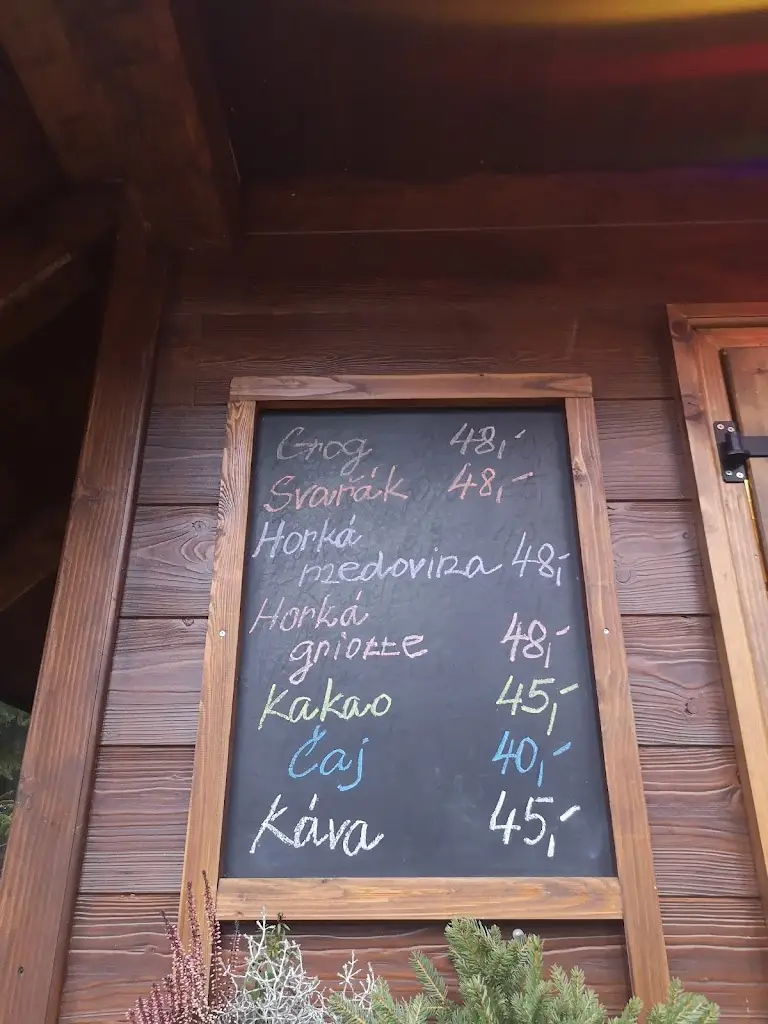 Grog 48,-
Svařák 48,-
Horká
medovina 48,-
Horká
griotte 48,-
Kakao 45,-
Čaj 40,-
Káva 45,-